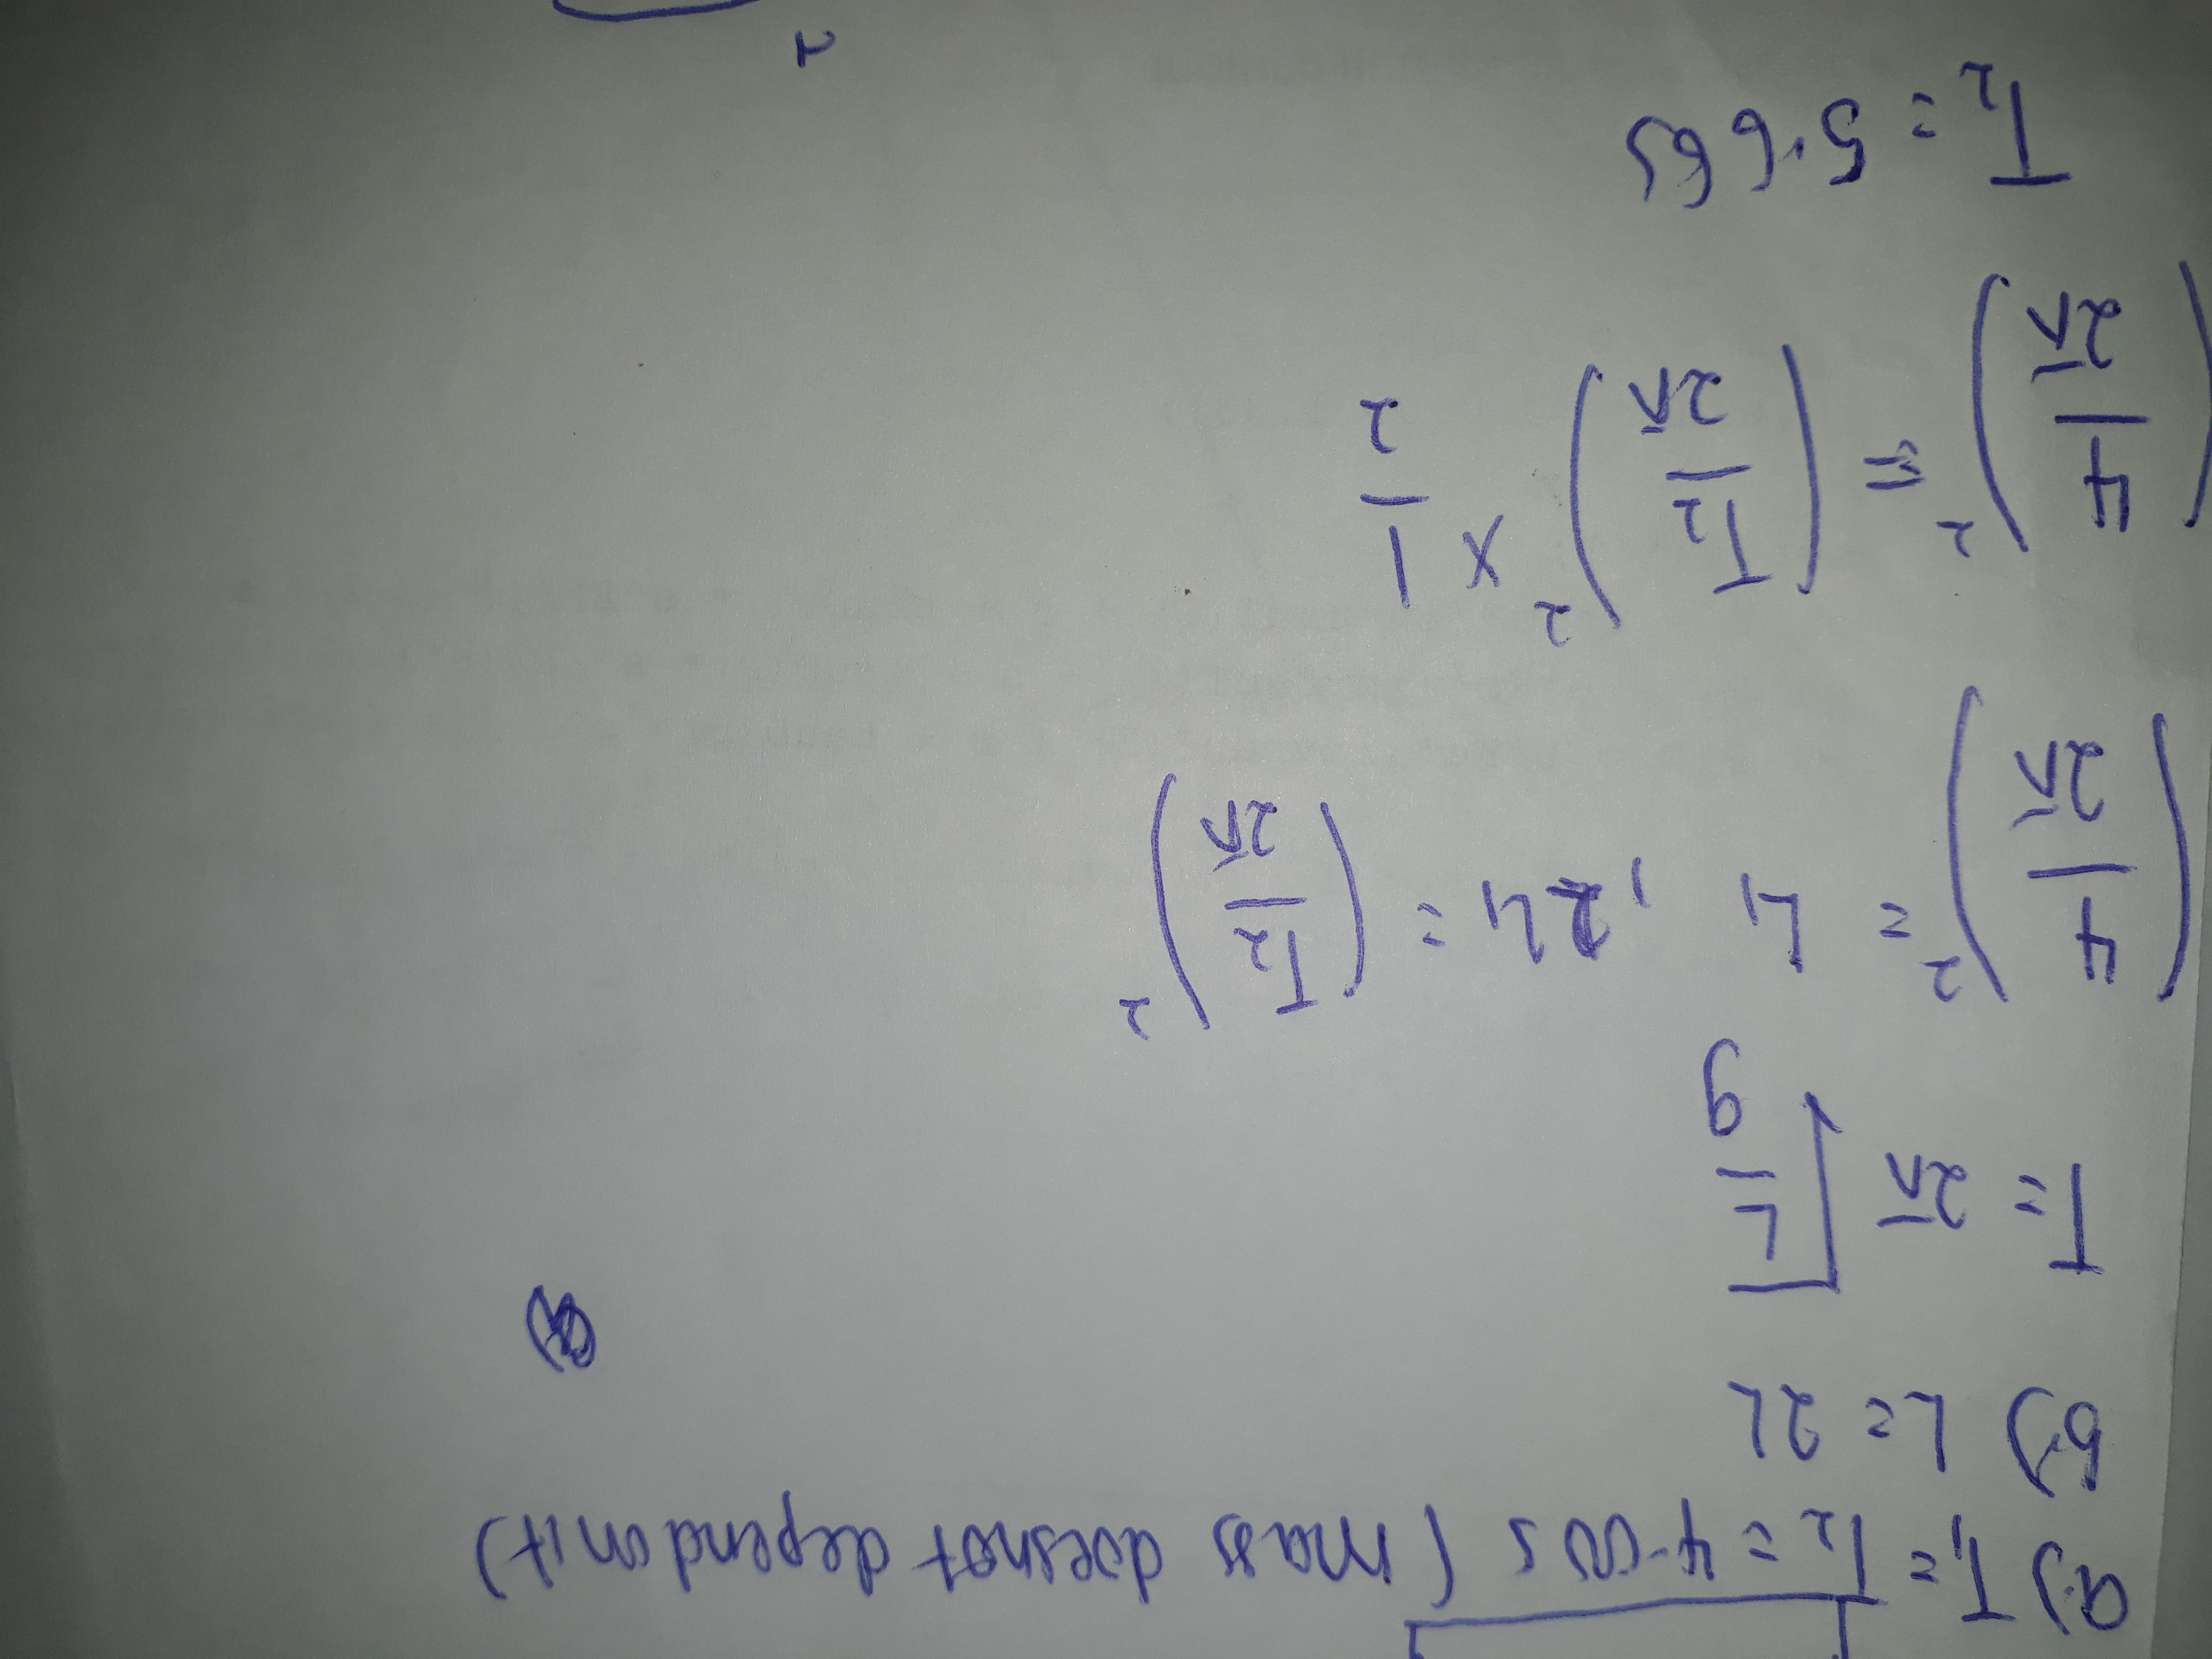 a.) T₁ = T₂ = 4.00 s (mass doesnot depend on it)
b.) L = 2L
T = 2π √(L/g)
(4/2π)² = L₁ , 2L₁ = (T₂/2π)²
(4/2π)² = (T₂/2π)² × 1/2
T₂ = 5.66s